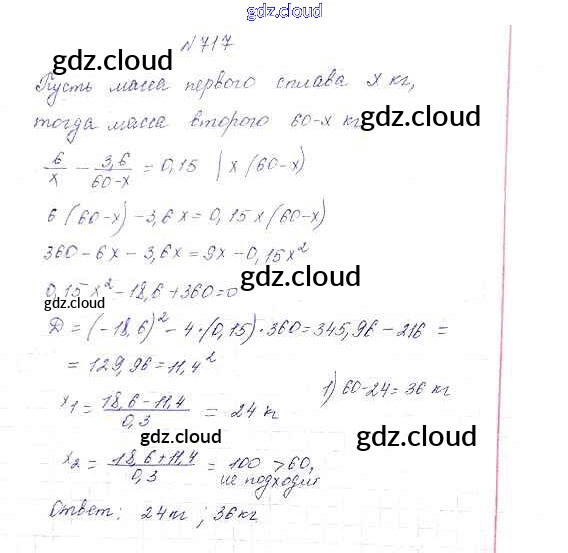 gdz.cloud
N717
gdz.cloud
Пусть масса первого сплава x кг,
gdz.cloud
тогда масса второго 60-x кг
gdz.cloud
6/x - 3,6/(60-x) = 0,15 | x(60-x)
6(60-x) - 3,6x = 0,15x(60-x)
360 - 6x - 3,6x = 9x - 0,15x²
gdz.cloud
0,15x² - 18,6 + 360 = 0
gdz.cloud
Д = (-18,6)² - 4·(0,15)·360 = 345,96 - 216 =
= 129,96 = 11,4²
x₁ = (18,6 - 11,4)/0,3 = 24 кг
1) 60-24 = 36 кг
gdz.cloud
gdz.cloud
x₂ = (18,6 + 11,4)/0,3 = 100 > 60,
не подходит
Ответ: 24кг ; 36кг
gdz.cloud